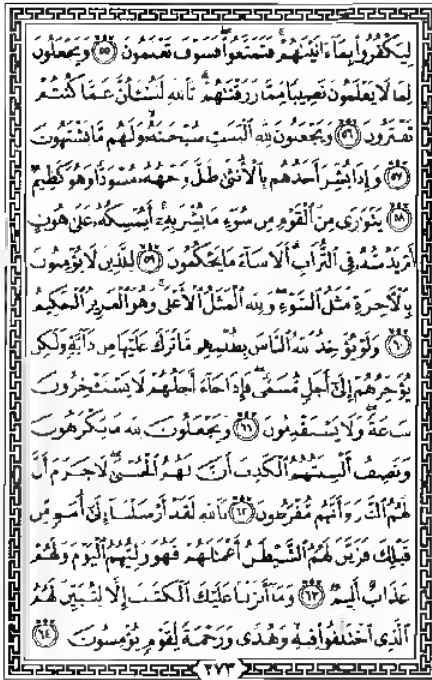 لِيَكْفُرُوا۟ بِمَآ ءَاتَيْنَٰهُمْ ۚ فَتَمَتَّعُوا۟ ۖ فَسَوْفَ تَعْلَمُونَ ٥٥ وَيَجْعَلُونَ
لِمَا لَا يَعْلَمُونَ نَصِيبًا مِّمَّا رَزَقْنَٰهُمْ ۗ تَٱللَّهِ لَتُسْـَٔلُنَّ عَمَّا كُنتُمْ
تَفْتَرُونَ ٥٦ وَيَجْعَلُونَ لِلَّهِ ٱلْبَنَٰتِ سُبْحَٰنَهُۥ ۙ وَلَهُم مَّا يَشْتَهُونَ
٥٧ وَإِذَا بُشِّرَ أَحَدُهُم بِٱلْأُنثَىٰ ظَلَّ وَجْهُهُۥ مُسْوَدًّا وَهُوَ كَظِيمٌ
٥٨ يَتَوَٰرَىٰ مِنَ ٱلْقَوْمِ مِن سُوٓءِ مَا بُشِّرَ بِهِۦٓ ۚ أَيُمْسِكُهُۥ عَلَىٰ هُونٍ
أَمْ يَدُسُّهُۥ فِى ٱلتُّرَابِ ۗ أَلَا سَآءَ مَا يَحْكُمُونَ ٥٩ لِلَّذِينَ لَا يُؤْمِنُونَ
بِٱلْـَٔاخِرَةِ مَثَلُ ٱلسَّوْءِ ۖ وَلِلَّهِ ٱلْمَثَلُ ٱلْأَعْلَىٰ ۚ وَهُوَ ٱلْعَزِيزُ ٱلْحَكِيمُ
٦٠ وَلَوْ يُؤَاخِذُ ٱللَّهُ ٱلنَّاسَ بِظُلْمِهِم مَّا تَرَكَ عَلَيْهَا مِن دَآبَّةٍ وَلَٰكِن
يُؤَخِّرُهُمْ إِلَىٰٓ أَجَلٍ مُّسَمًّى ۖ فَإِذَا جَآءَ أَجَلُهُمْ لَا يَسْتَـْٔخِرُونَ
سَاعَةً ۖ وَلَا يَسْتَقْدِمُونَ ٦١ وَيَجْعَلُونَ لِلَّهِ مَا يَكْرَهُونَ
وَتَصِفُ أَلْسِنَتُهُمُ ٱلْكَذِبَ أَنَّ لَهُمُ ٱلْحُسْنَىٰ ۖ لَا جَرَمَ أَنَّ
لَهُمُ ٱلنَّارَ وَأَنَّهُم مُّفْرَطُونَ ٦٢ تَٱللَّهِ لَقَدْ أَرْسَلْنَآ إِلَىٰٓ أُمَمٍ مِّن
قَبْلِكَ فَزَيَّنَ لَهُمُ ٱلشَّيْطَٰنُ أَعْمَٰلَهُمْ فَهُوَ وَلِيُّهُمُ ٱلْيَوْمَ وَلَهُمْ
عَذَابٌ أَلِيمٌ ٦٣ وَمَآ أَنزَلْنَا عَلَيْكَ ٱلْكِتَٰبَ إِلَّا لِتُبَيِّنَ لَهُمُ
ٱلَّذِى ٱخْتَلَفُوا۟ فِيهِ ۙ وَهُدًى وَرَحْمَةً لِّقَوْمٍ يُؤْمِنُونَ ٦٤
٢٧٣